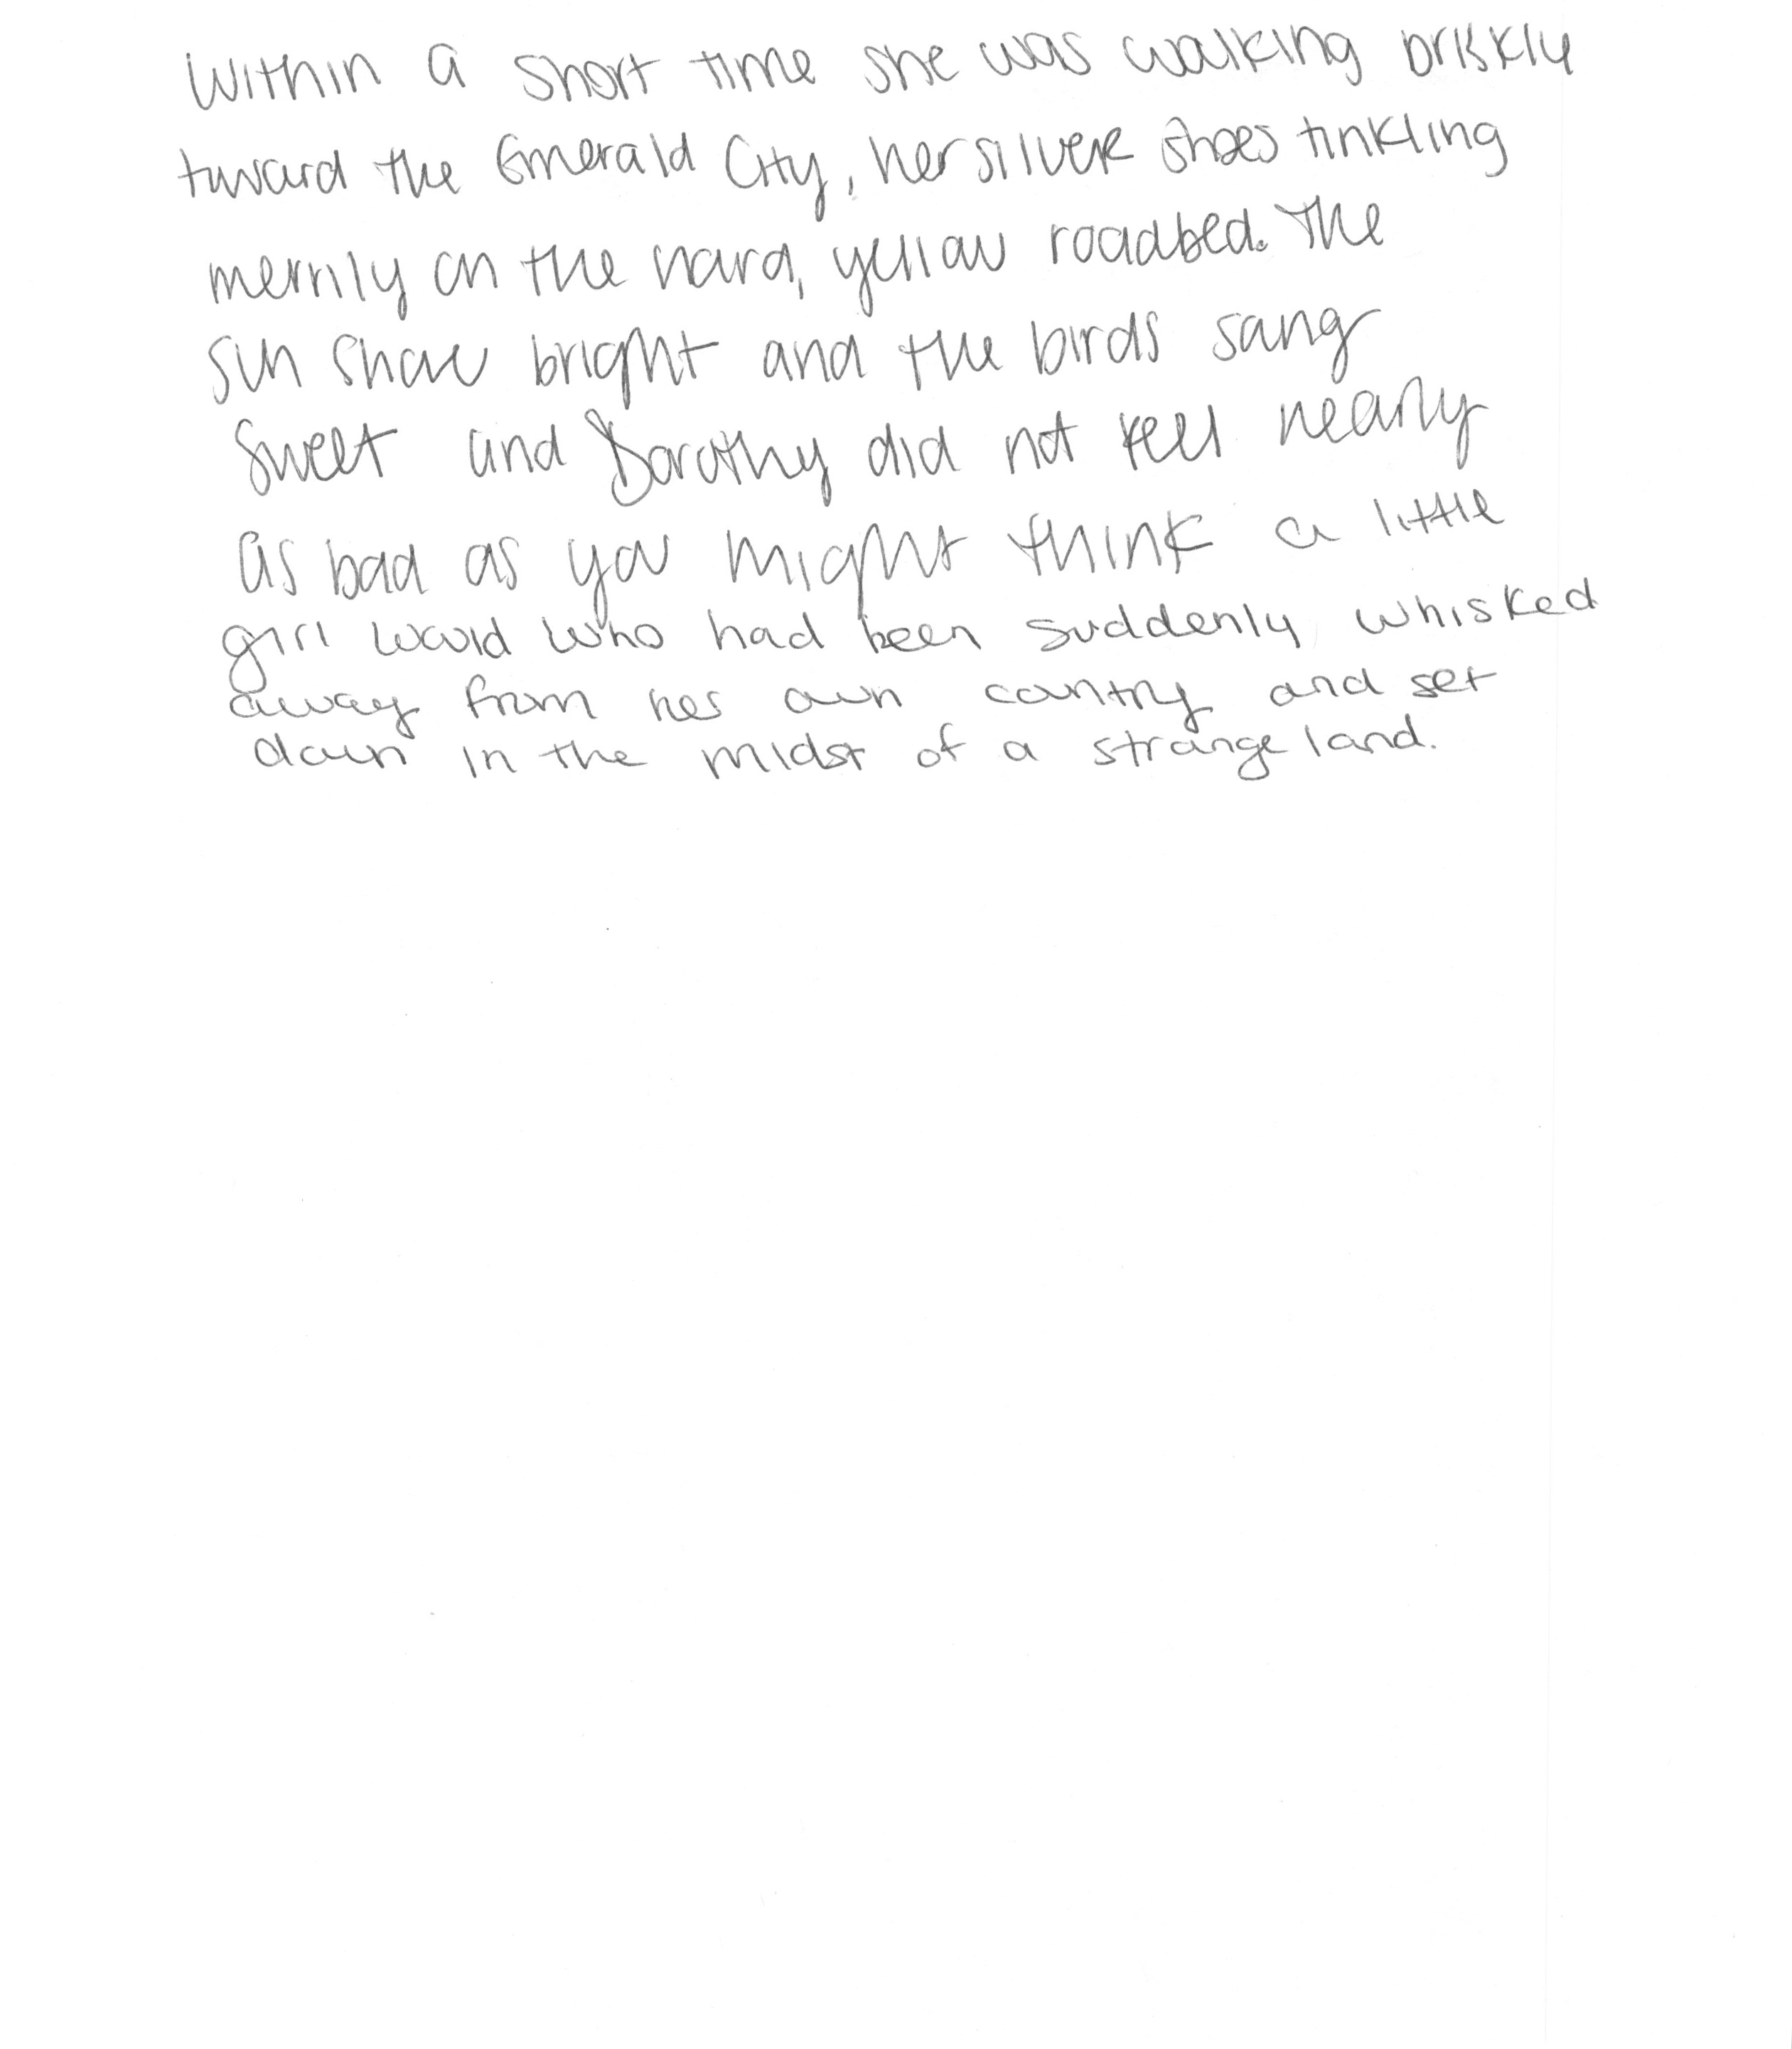 Within a short time she was walking briskly
toward the Emerald City, her silver shoes tinkling
merrily on the hard, yellow roadbed. The
sun shone bright and the birds sang
sweet and Dorothy did not feel nearly
as bad as you might think a little
girl would who had been suddenly whisked
away from her own country and set
down in the midst of a strange land.